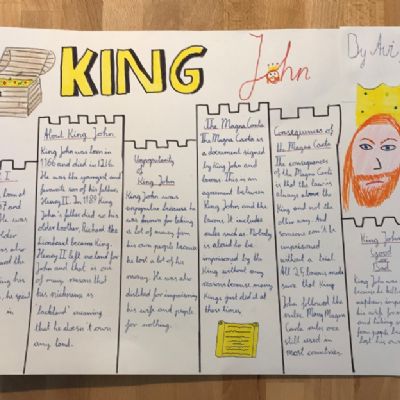 KING John
By Avi
About King John
King John was born in
1166 and died in 1216.
He was the youngest and
favourite son of his father,
Henry II. In 1189 King
John's father died so his
older brother, Richard the
Lionheart became King.
Henry II left no land for
John and that is one
of many reasons that
his nickname is
'lackland' meaning
that he doesn't own
any land.
Unpopularity
of
King John
King John was
unpopular because he
was known for taking
a lot of money from
his own people because
he lost a lot of his
money. He was also
disliked for imprisoning
his wife and people
for nothing.
The Magna Carta
The Magna Carta is
a document signed
by King John and
barons. This is an
agreement between
King John and the
barons. It includes
rules such as: Nobody
is aloud to be
imprisoned by the
King without any
reasons because many
Kings just did it at
these times.
Consequences of
the Magna Carta
The consequences
of the Magna Carta
is that the law is
always above the
King and not the
other way. And
someone can't be
imprisoned
without a trial.
All 25 barons made
sure that King
John followed the
rules. Many Magna
Carta rules are
still used in
most countries.
King John
Good
or
Bad
King John was
because he killed
nephew, impris
his wife for no
and taking a
from people be
lost his own